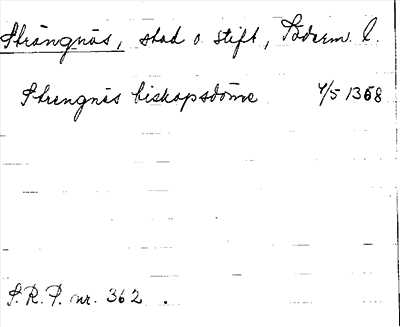 Strängnäs, stad o. stift, Söderm. l.
Strengnäs biskopsdöme 4/5 1368
S.R.P. nr. 362.